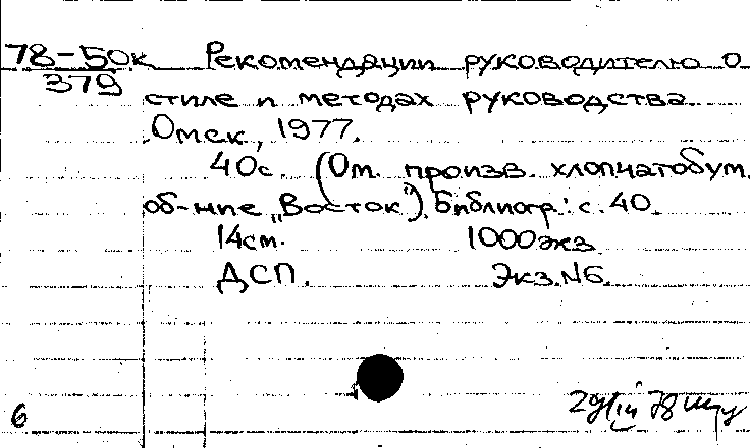 78-50к Рекомендации руководителю о
379
стиле и методах руководства.
Омск, 1977.
40с. (Ом. произв. хлопчатобум.
об-ние „Восток"). Библиогр.: с. 40.
14см. 1000экз.
ДСП. Экз.№6.
6